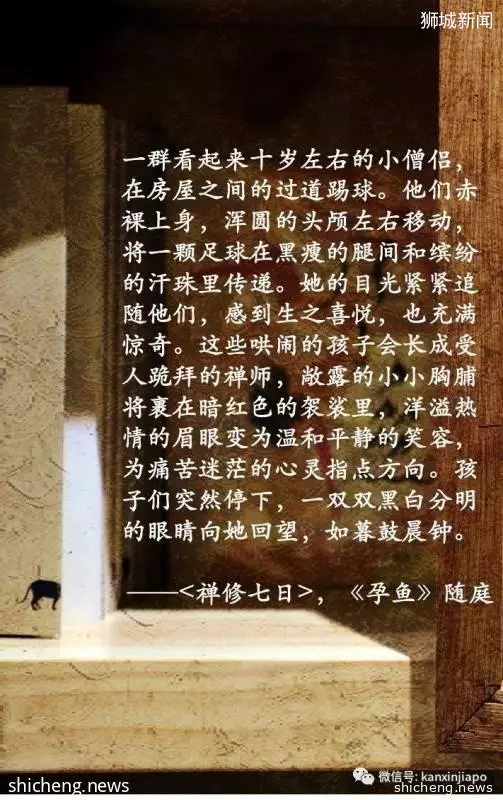 狮城新闻
一群看起来十岁左右的小僧侣，
在房屋之间的过道踢球。他们赤
裸上身，浑圆的头颅左右移动，
将一颗足球在黑瘦的腿间和缤纷
的汗珠里传递。她的目光紧紧追
随他们，感到生之喜悦，也充满
惊奇。这些哄闹的孩子会长成受
人跪拜的禅师，敞露的小小胸脯
将裹在暗红色的袈裟里，洋溢热
情的眉眼变为温和平静的笑容，
为痛苦迷茫的心灵指点方向。孩
子们突然停下，一双双黑白分明
的眼睛向她回望，如暮鼓晨钟。
——<禅修七日>，《孕鱼》随庭
微信号: kanxinjiapo
shicheng.news
shicheng.news